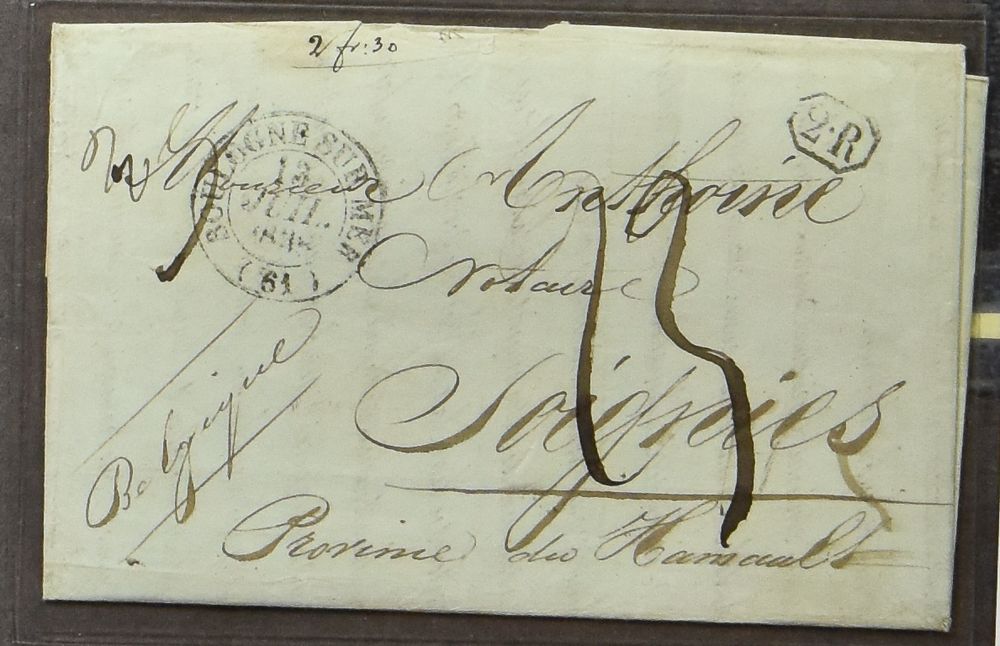 2 fr: 30
BOULOGNE SUR MER
13
JUIL.
1838
(61)
2.R
Monsieur Anthoine
Notaire
Soignies
Province du Hainault
Belgique